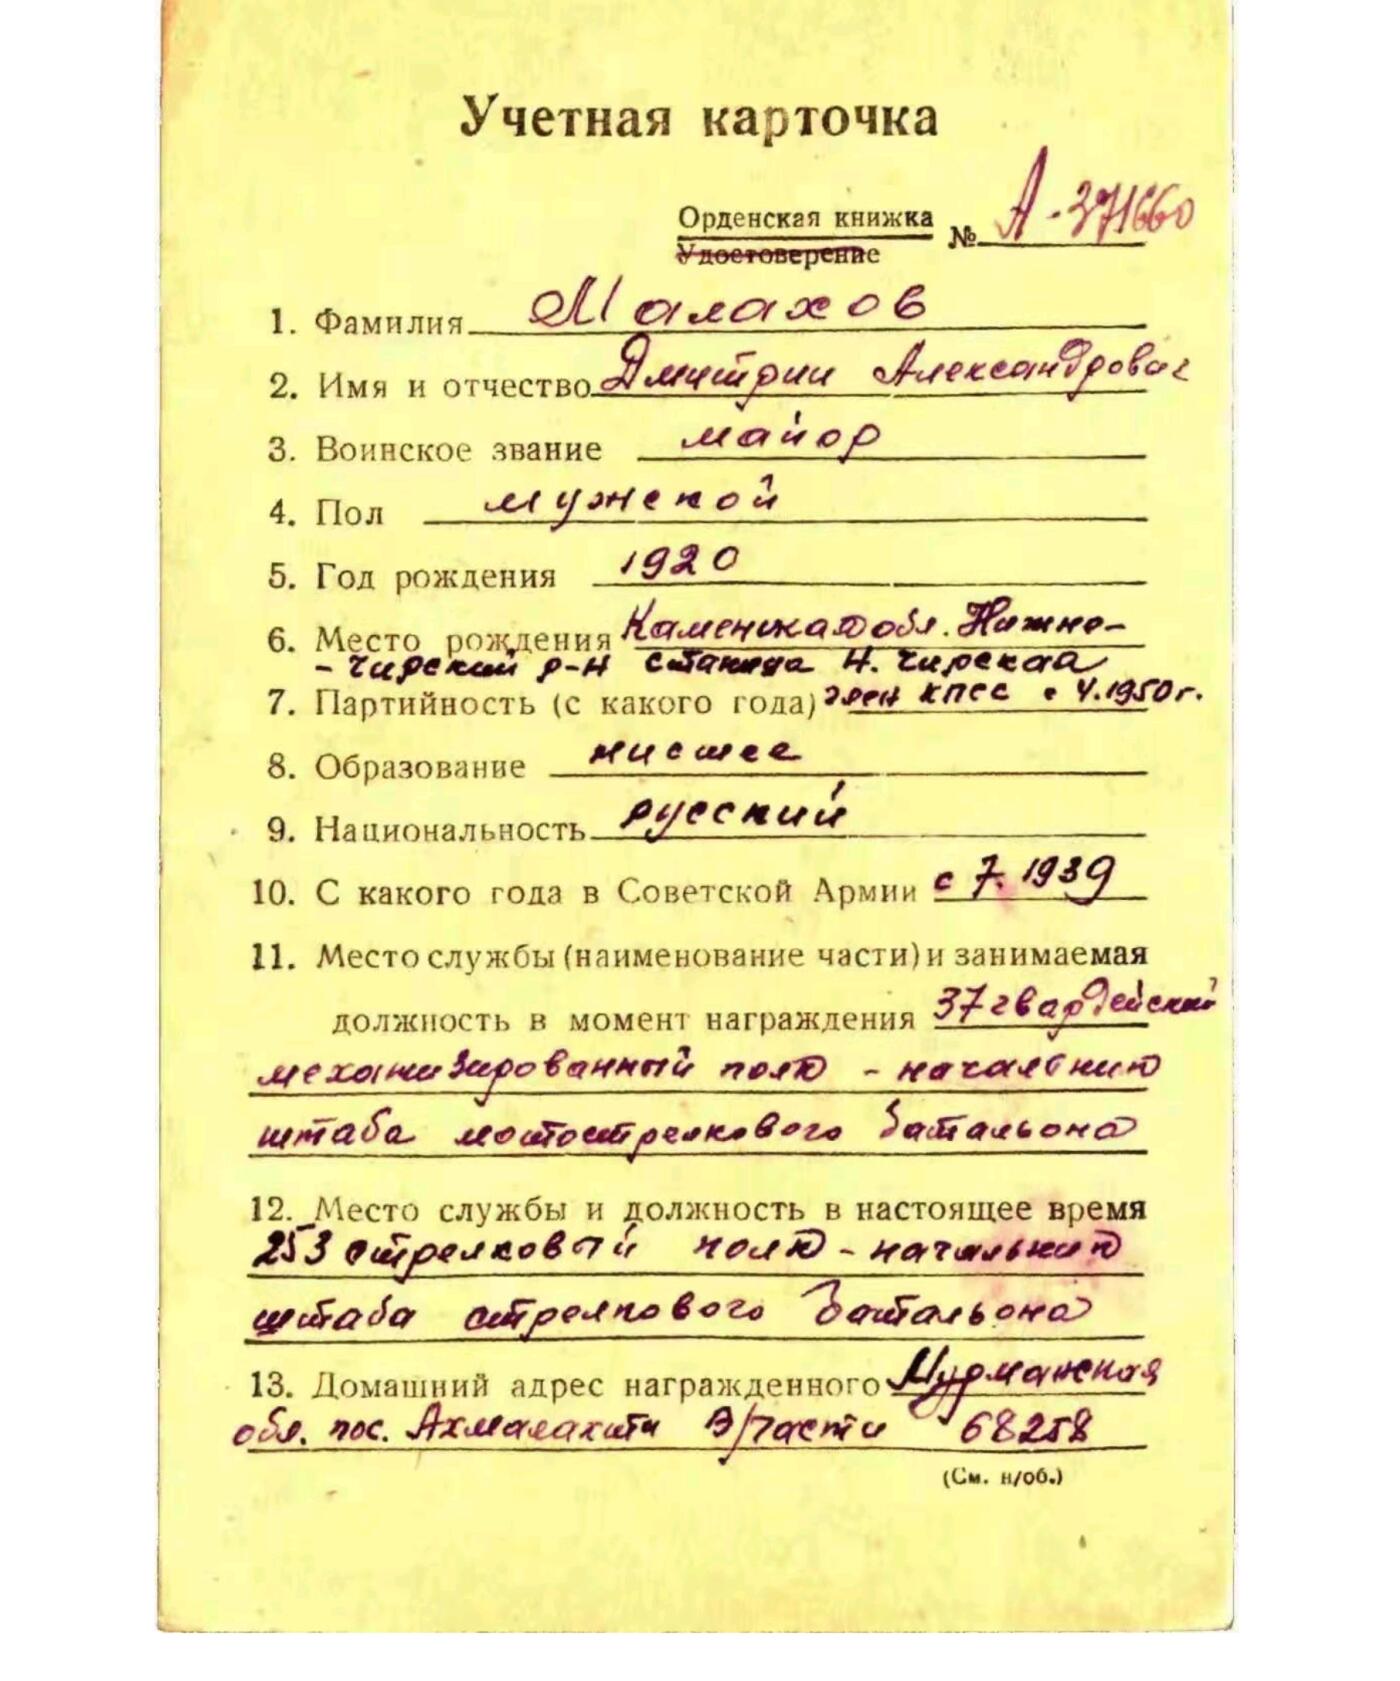 Учетная карточка
Орденская книжка
Удостоверение
№ А-371660
1. Фамилия Малахов
2. Имя и отчество Дмитрий Александрович
3. Воинское звание майор
4. Пол мужской
5. Год рождения 1920
6. Место рождения Каменская обл. Нижне-
-Чирский р-н станица Н. Чирская
7. Партийность (с какого года) член КПСС с 4.1950 г.
8. Образование низшее
9. Национальность русский
10. С какого года в Советской Армии с 7. 1939
11. Место службы (наименование части) и занимаемая
должность в момент награждения 37 гвардейский
механизированный полк - начальник
штаба мотострелкового батальона
12. Место службы и должность в настоящее время
253 стрелковый полк - начальник
штаба стрелкового батальона
13. Домашний адрес награжденного Мурманская
обл. пос. Ахмалахти В/части 68258
(См. н/об.)